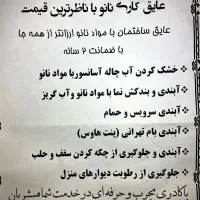 عایق کاری نانو با نازلترین قیمت
عایق ساختمان با مواد نانو ارزانتر از همه جا
با ضمانت ۲ ساله
• خشک کردن آب چاله آسانسور با مواد نانو
• آبندی و بندکش نما با مواد نانو وآب گریز
• آبندی سرویس و حمام
• آبندی بام تهرانی (پنت هاوس)
• آبندی و جلوگیری از چکه کردن سقف و حلب
• آبندی و جلوگیری از رطوبت دیوارهای منزل
باکادری مجرب و حرفه ای در خدمت شما همشهریان